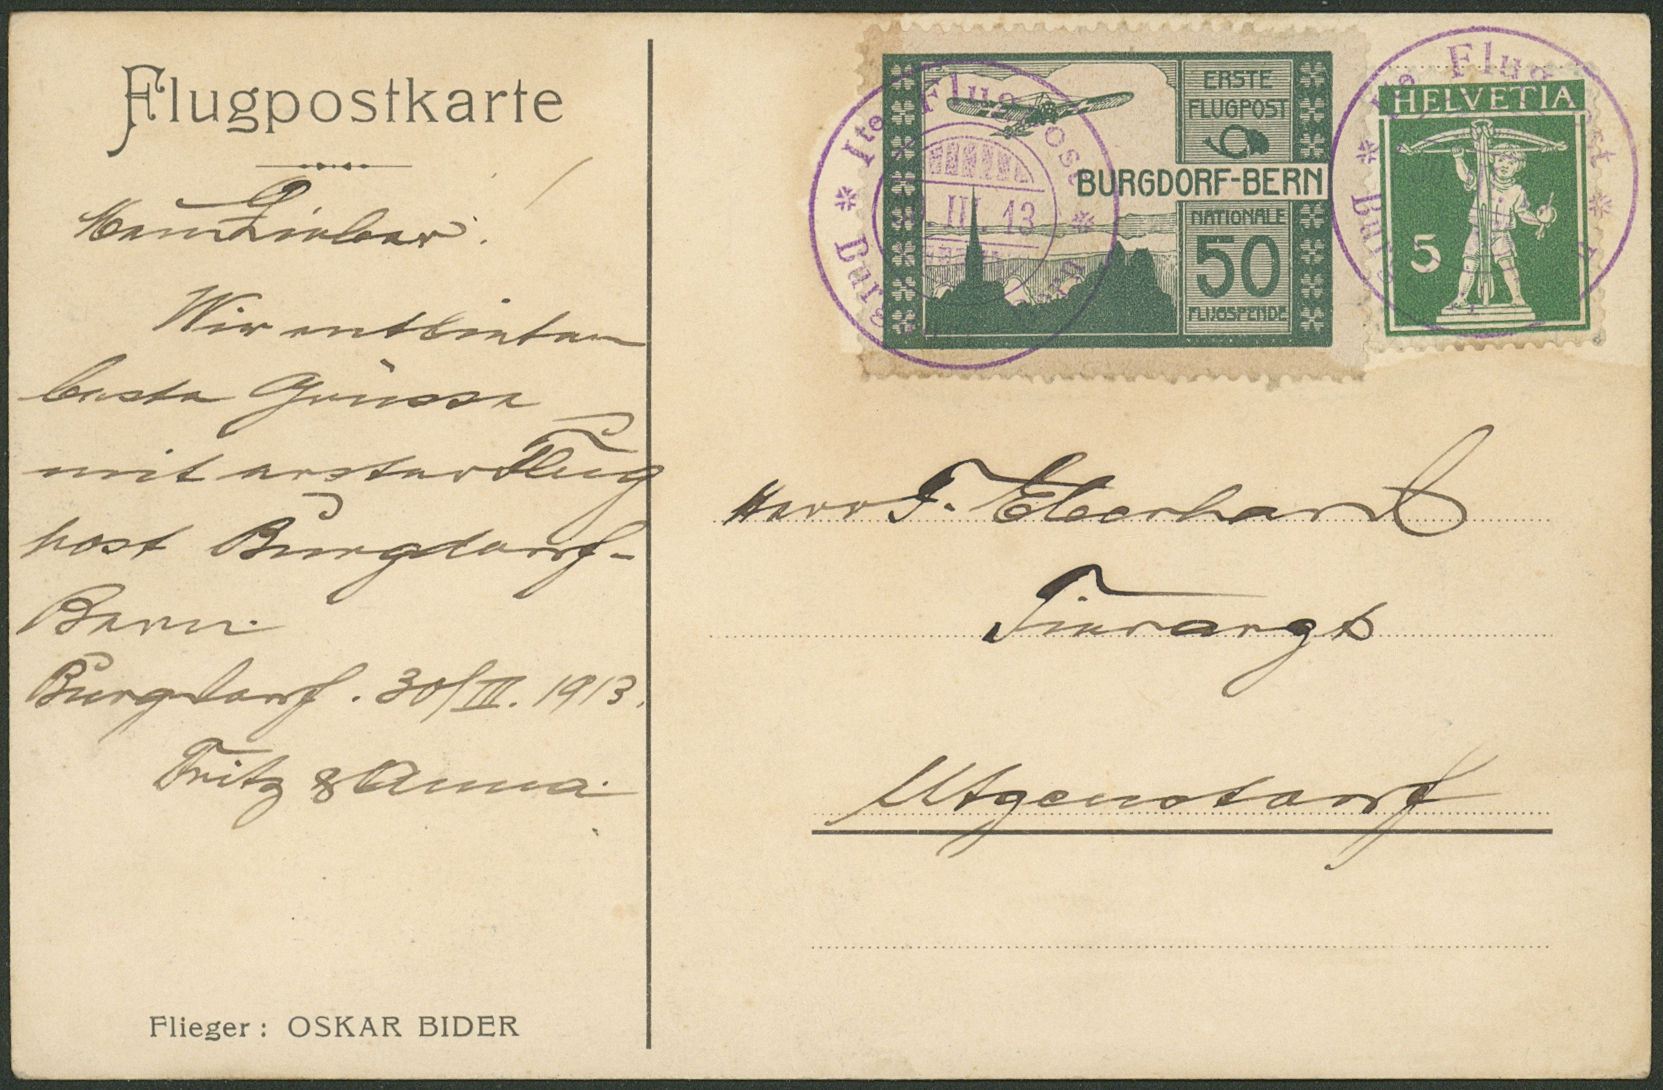 Flugpostkarte
Mein Lieber!
Wir entbieten
beste Grüsse
mit erster Flug
post Burgdorf-
Bern.
Burgdorf. 30/III. 1913.
Fritz & Anna.
Flieger: OSKAR BIDER
ERSTE
FLUGPOST
BURGDORF-BERN
NATIONALE
50
FLUGSPENDE
Ite Flugpost
III. 13
Burgdorf
HELVETIA
5
Herr F. Eberhard
Tierarzt
Utzenstorf